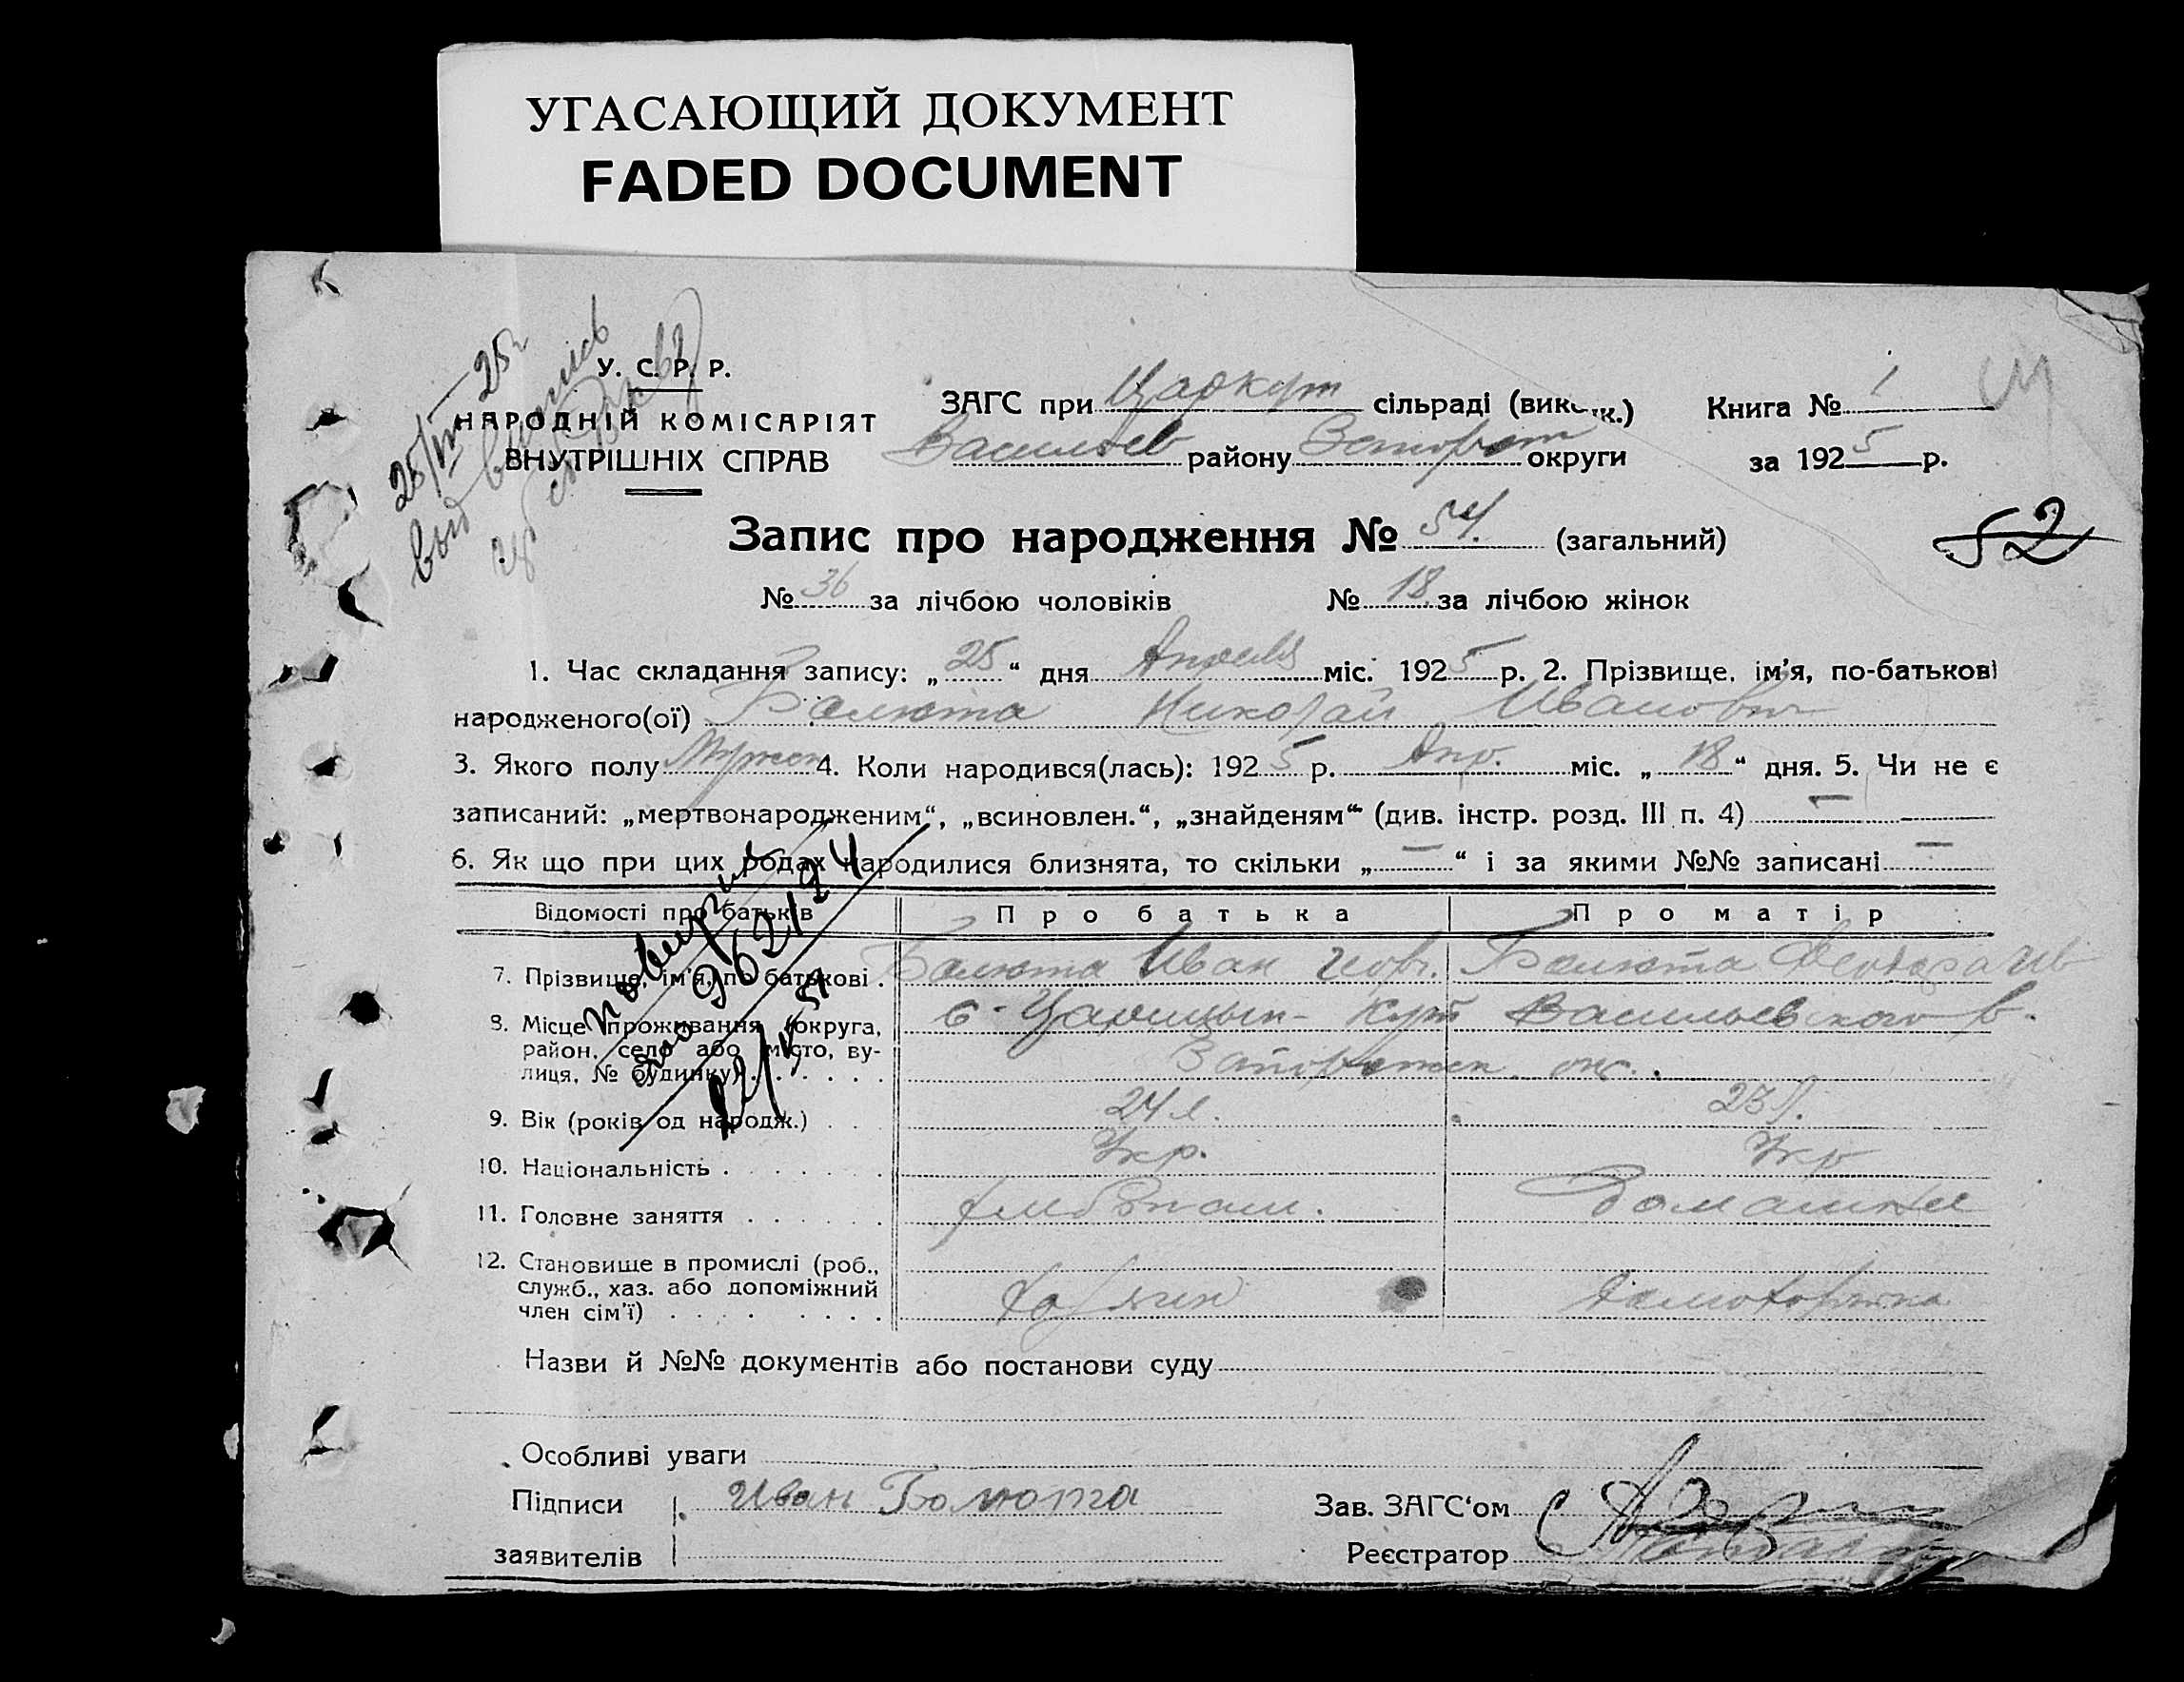 УГАСАЮЩИЙ ДОКУМЕНТ
FADED DOCUMENT
У. С. Р. Р.
НАРОДНІЙ КОМІСАРІЯТ
ВНУТРІШНІХ СПРАВ
ЗАГС при Царкут сільраді (вик к.)
Васильев району округи
Книга № 1
за 1925 р.
52
Запис про народження № 54. (загальний)
№ 36 за лічбою чоловіків № 18 за лічбою жінок
1. Час складання запису: „25“ дня Апреля міс. 1925 р. 2. Прізвище, ім’я, по-батькові
народженого(ої) Балюта Николай Иванович
3. Якого полу Мужск 4. Коли народився(лась): 1925 р. Апр. міс. „18“ дня. 5. Чи не є
записаний: „мертвонародженим“, „всиновлен.“, „знайденям“ (див. інстр. розд. III п. 4) —
6. Як що при цих родах народилися близнята, то скільки „—“ і за якими №№ записані —
Відомості про батьків Про батька Про матір
7. Прізвище, ім’я, по батькові . Балюта Иван Балюта
8. Місце проживання (округа, с. Царицын-Кут Васильевского р.
район, село або місто, ву-
лиця, № будинку) . . . . . . Запорожск. ок.
9. Вік (років од народж.) . . . 24 л. 23 л.
10. Національність . . . . . . Укр. Укр
11. Головне заняття . . . . . . хлебопаш. Домашняя
12. Становище в промислі (роб.,
служб., хаз. або допоміжний
член сім’ї) . . . . . . . . Хозяин
Назви й №№ документів або постанови суду
Особливі уваги
Підписи Иван Балюта Зав. ЗАГС‘ом
заявителів Реєстратор